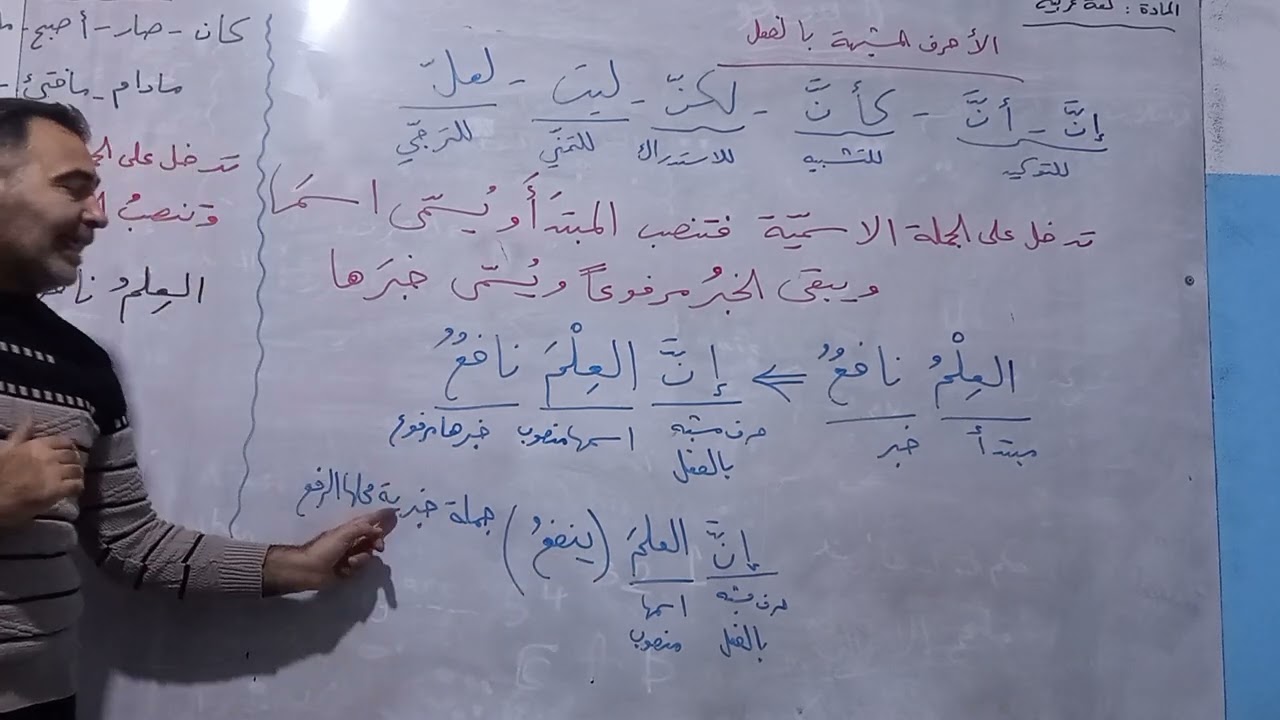 المادة : لغة عربية
الأحرف المشبهة بالفعل
إنَّ - أنَّ - كأنَّ - لكنّ - ليت - لعلّ
للتوكيد للتشبيه للاستدراك للتمنّي للترجّي
تدخل على الجملة الاسميّة فتنصب المبتدَأَ و يُسمّى اسمَها
ويبقى الخبرُ مرفوعاً ويُسمّى خبرَها
العِلْمُ نافعٌ ⇐ إنَّ العِلْمَ نافعٌ
مبتدأ خبر حرف مشبه بالفعل اسمها منصوب خبرها مرفوع
إنَّ العلمَ (ينفعُ) جملة خبرية محلها الرفع
حرف مشبه بالفعل اسمها منصوب
كان - صار - أصبح -
مادام - مافتئ -
تدخل على
وتنصبُ
العِلمُ